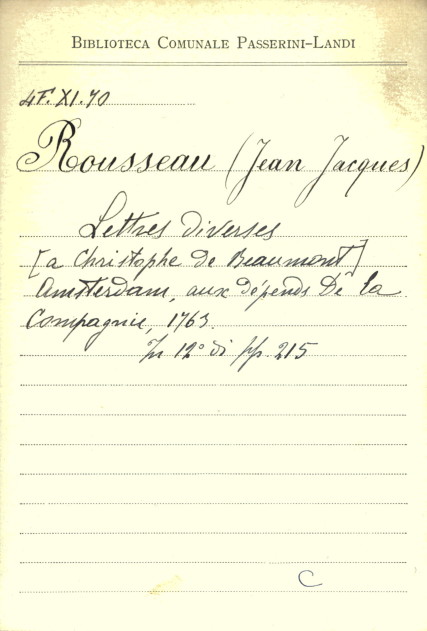 BIBLIOTECA COMUNALE PASSERINI-LANDI
4F.XI.70
Rousseau (Jean Jacques)
Lettres diverses
[a Christophe de Beaumont]
Amsterdam, aux dépends De la
Compagnie, 1763.
In 12° di pp. 215
C